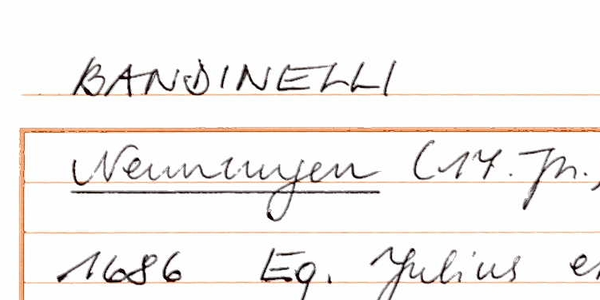 BANDINELLI
Nennungen (17. Jh.,
1686 Eq. Julius